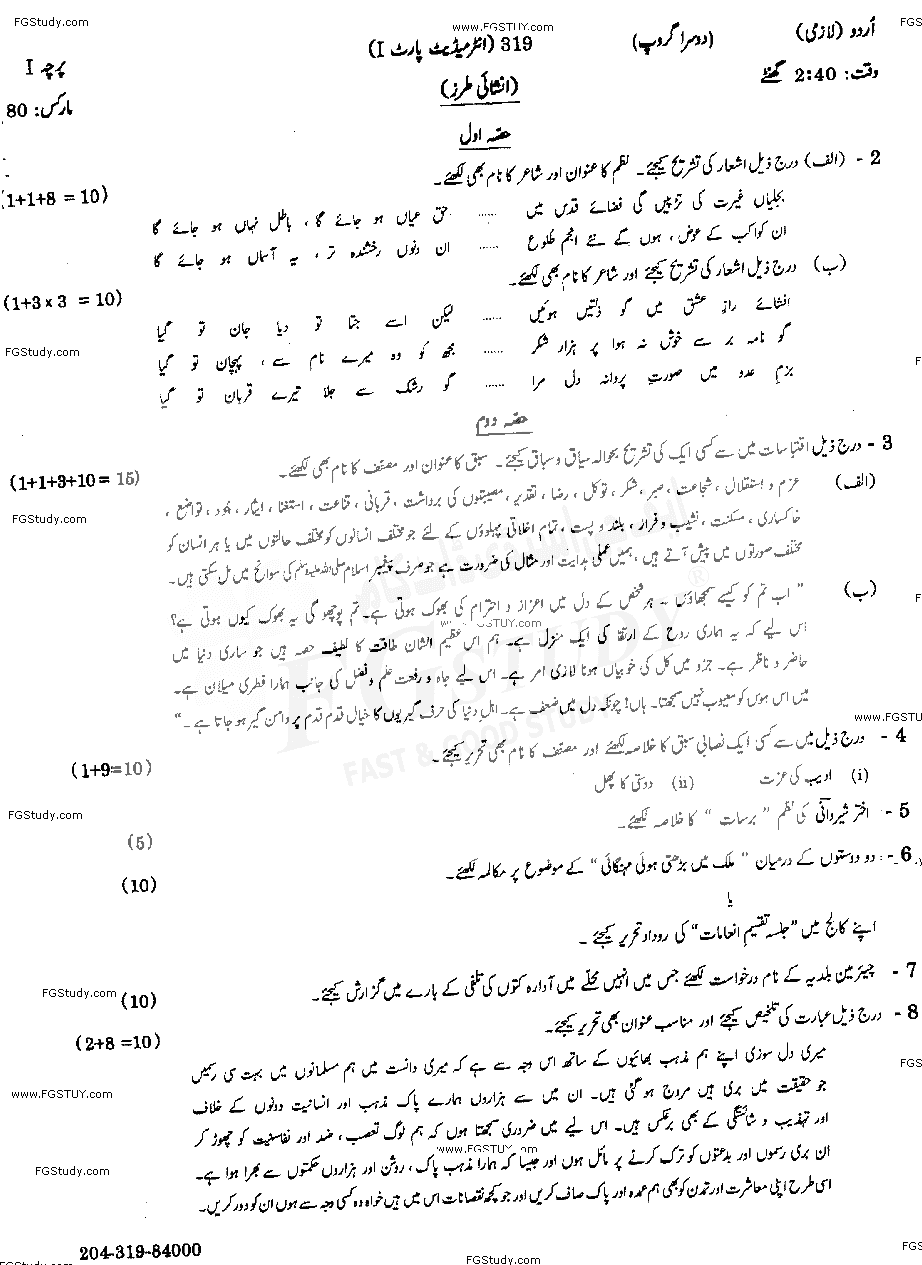 FGStudy.com
www.FGSTUY.com
FGS
اُردو (لازمی) (دوسرا گروپ) 319 (انٹرمیڈیٹ پارٹ I) پرچہ I
وقت: 2:40 گھنٹے (انشائی طرز) مارکس: 80
حصہ اول
2 - (الف) درج ذیل اشعار کی تشریح کیجئے۔ نظم کا عنوان اور شاعر کا نام بھی لکھئے۔ (1+1+8 = 10)
بجلیاں غیرت کی تڑپیں گی فضائے قدس میں ...... حق عیاں ہو جائے گا ، باطل نہاں ہو جائے گا
ان کواکب کے عوض ، ہوں گے نئے انجم طلوع ...... ان دنوں رخشندہ تر ، یہ آسماں ہو جائے گا
(ب) درج ذیل اشعار کی تشریح کیجئے اور شاعر کا نام بھی لکھئے۔ (1+3 x 3 = 10)
افشائے رازِ عشق میں گو ذلتیں ہوئیں ...... لیکن اسے جتا تو دیا جان تو گیا
گو نامہ بر سے خوش نہ ہوا پر ہزار شکر ...... مجھ کو وہ میرے نام سے ، پہچان تو گیا
FGStudy.com
بزمِ عدو میں صورتِ پروانہ دل مرا ...... گو رشک سے جلا تیرے قربان تو گیا
حصہ دوم
3 - درج ذیل اقتباسات میں سے کسی ایک کی تشریح بحوالہ سیاق و سباق کیجئے۔ سبق کا عنوان اور مصنف کا نام بھی لکھئے۔ (1+1+3+10 = 15)
(الف) عزم و استقلال ، شجاعت ، صبر ، شکر ، توکل ، رضا ، تقدیر ، مصیبتوں کی برداشت ، قربانی ، قناعت ، استغنا ، ایثار ، جُود ، تواضع ،
FGStudy.com
خاکساری ، مسکنت ، نشیب و فراز ، بلند و پست ، تمام اخلاقی پہلوؤں کے لئے جو مختلف انسانوں کو مختلف حالتوں میں یا ہر انسان کو
مختلف صورتوں میں پیش آتے ہیں ، ہمیں عملی ہدایت اور مثال کی ضرورت ہے جو صرف پیغمبر اسلام صلی اللہ علیہ وسلم کی سوانح میں مل سکتی ہیں۔
(ب) " اب تم کو کیسے سمجھاؤں ۔ ہر شخص کے دل میں اعزاز و احترام کی بھوک ہوتی ہے۔ تم پوچھو گی یہ بھوک کیوں ہوتی ہے؟
www.FGSTUY.com
اس لیے کہ یہ ہماری روح کے ارتقا کی ایک منزل ہے۔ ہم اس عظیم الشان طاقت کا لطیف حصہ ہیں جو ساری دنیا میں
حاضر و ناظر ہے۔ جزو میں کل کی خوبیاں ہونا لازمی امر ہے۔ اس لیے جاہ و رفعت علم و فضل کی جانب ہمارا فطری میلان ہے۔
میں اس ہوس کو معیوب نہیں سمجھتا۔ ہاں! چونکہ دل میں ضعف ہے۔ اہلِ دنیا کی حرف گیریوں کا خیال قدم قدم پر دامن گیر ہو جاتا ہے۔"
FGSTUDY ®
FAST & GOOD STUDY
www.FGSTU
4 - درج ذیل میں سے کسی ایک نصابی سبق کا خلاصہ لکھئے اور مصنف کا نام بھی تحریر کیجئے۔ (1+9=10)
(i) ادیب کی عزت (ii) دوستی کا پھل
FGStudy.com
5 - اختر شیرانی کی نظم " برسات " کا خلاصہ لکھئے۔ (5)
6 - دو دوستوں کے درمیان " ملک میں بڑھتی ہوئی مہنگائی " کے موضوع پر مکالمہ لکھئے۔ (10)
یا
اپنے کالج میں "جلسہ تقسیمِ انعامات" کی روداد تحریر کیجئے۔
7 - چیئرمین بلدیہ کے نام درخواست لکھئے جس میں انہیں محلے میں آوارہ کتوں کی تلفی کے بارے میں گزارش کیجئے۔ (10)
FGStudy.com
8 - درج ذیل عبارت کی تلخیص کیجئے اور مناسب عنوان بھی تحریر کیجئے۔ (2+8 =10)
میری دل سوزی اپنے ہم مذہب بھائیوں کے ساتھ اس وجہ سے ہے کہ میری دانست میں ہم مسلمانوں میں بہت سی رسمیں
FGS
جو حقیقت میں بری ہیں مروج ہو گئی ہیں۔ ان میں سے ہزاروں ہمارے پاک مذہب اور انسانیت دونوں کے خلاف
www.FGSTUY.com
اور تہذیب و شائستگی کے بھی برعکس ہیں۔ اس لیے میں ضروری سمجھتا ہوں کہ ہم لوگ تعصب ، ضد اور نفاسنیت کو چھوڑ کر
www.FGSTUY.com
ان بری رسموں اور بدعتوں کو ترک کرنے پر مائل ہوں اور جیسا کہ ہمارا مذہب پاک ، روشن اور ہزاروں حکمتوں سے بھرا ہوا ہے۔
FGStudy.com
اسی طرح اپنی معاشرت اور تمدن کو بھی ہم عمدہ اور پاک صاف کریں اور جو کچھ نقصانات اس میں ہیں خواہ وہ کسی وجہ سے ہوں ان کو دور کریں۔
204-319-84000
FGStudy.com
FGS